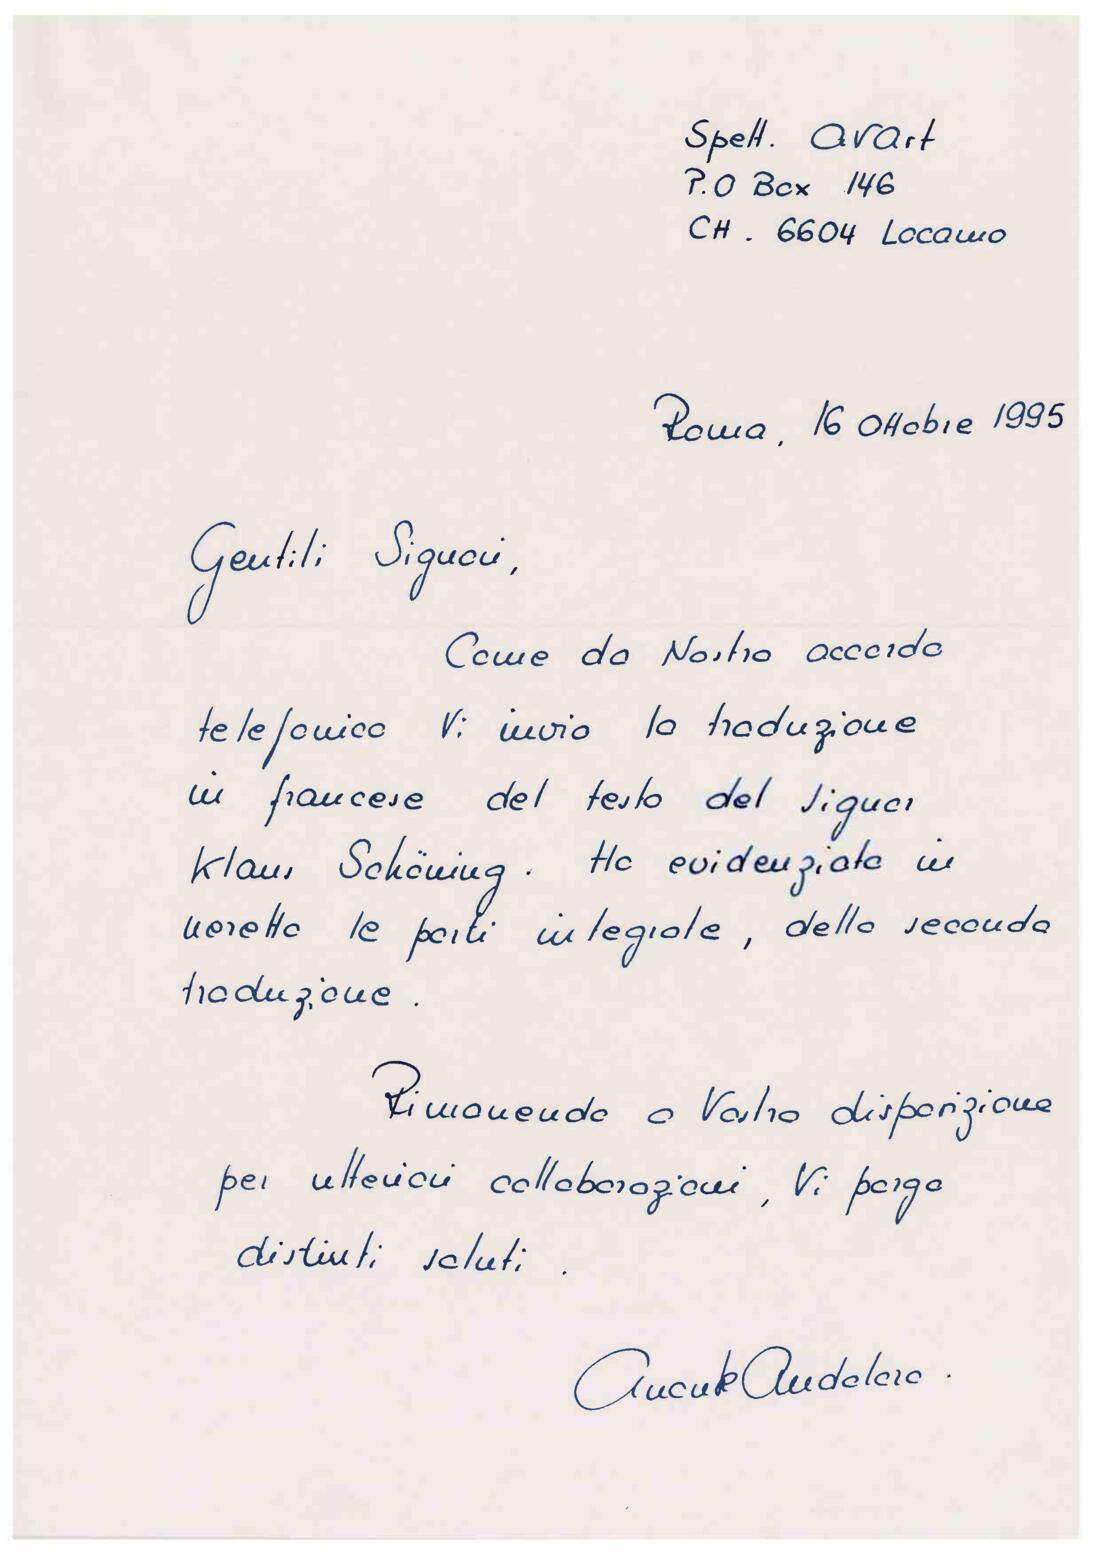 Spett. AVArt
P.O Box 146
CH. 6604 Locarno
Roma, 16 Ottobre 1995
Gentili Signori,
Come da Nostro accordo
telefonico Vi invio la traduzione
in francese del testo del signor
Klaus Schöning. Ho evidenziato in
neretto le parti integrate, della seconda
traduzione.
Rimanendo a Vostra disposizione
per ulteriori collaborazioni, Vi porgo
distinti saluti.
Andaloro.